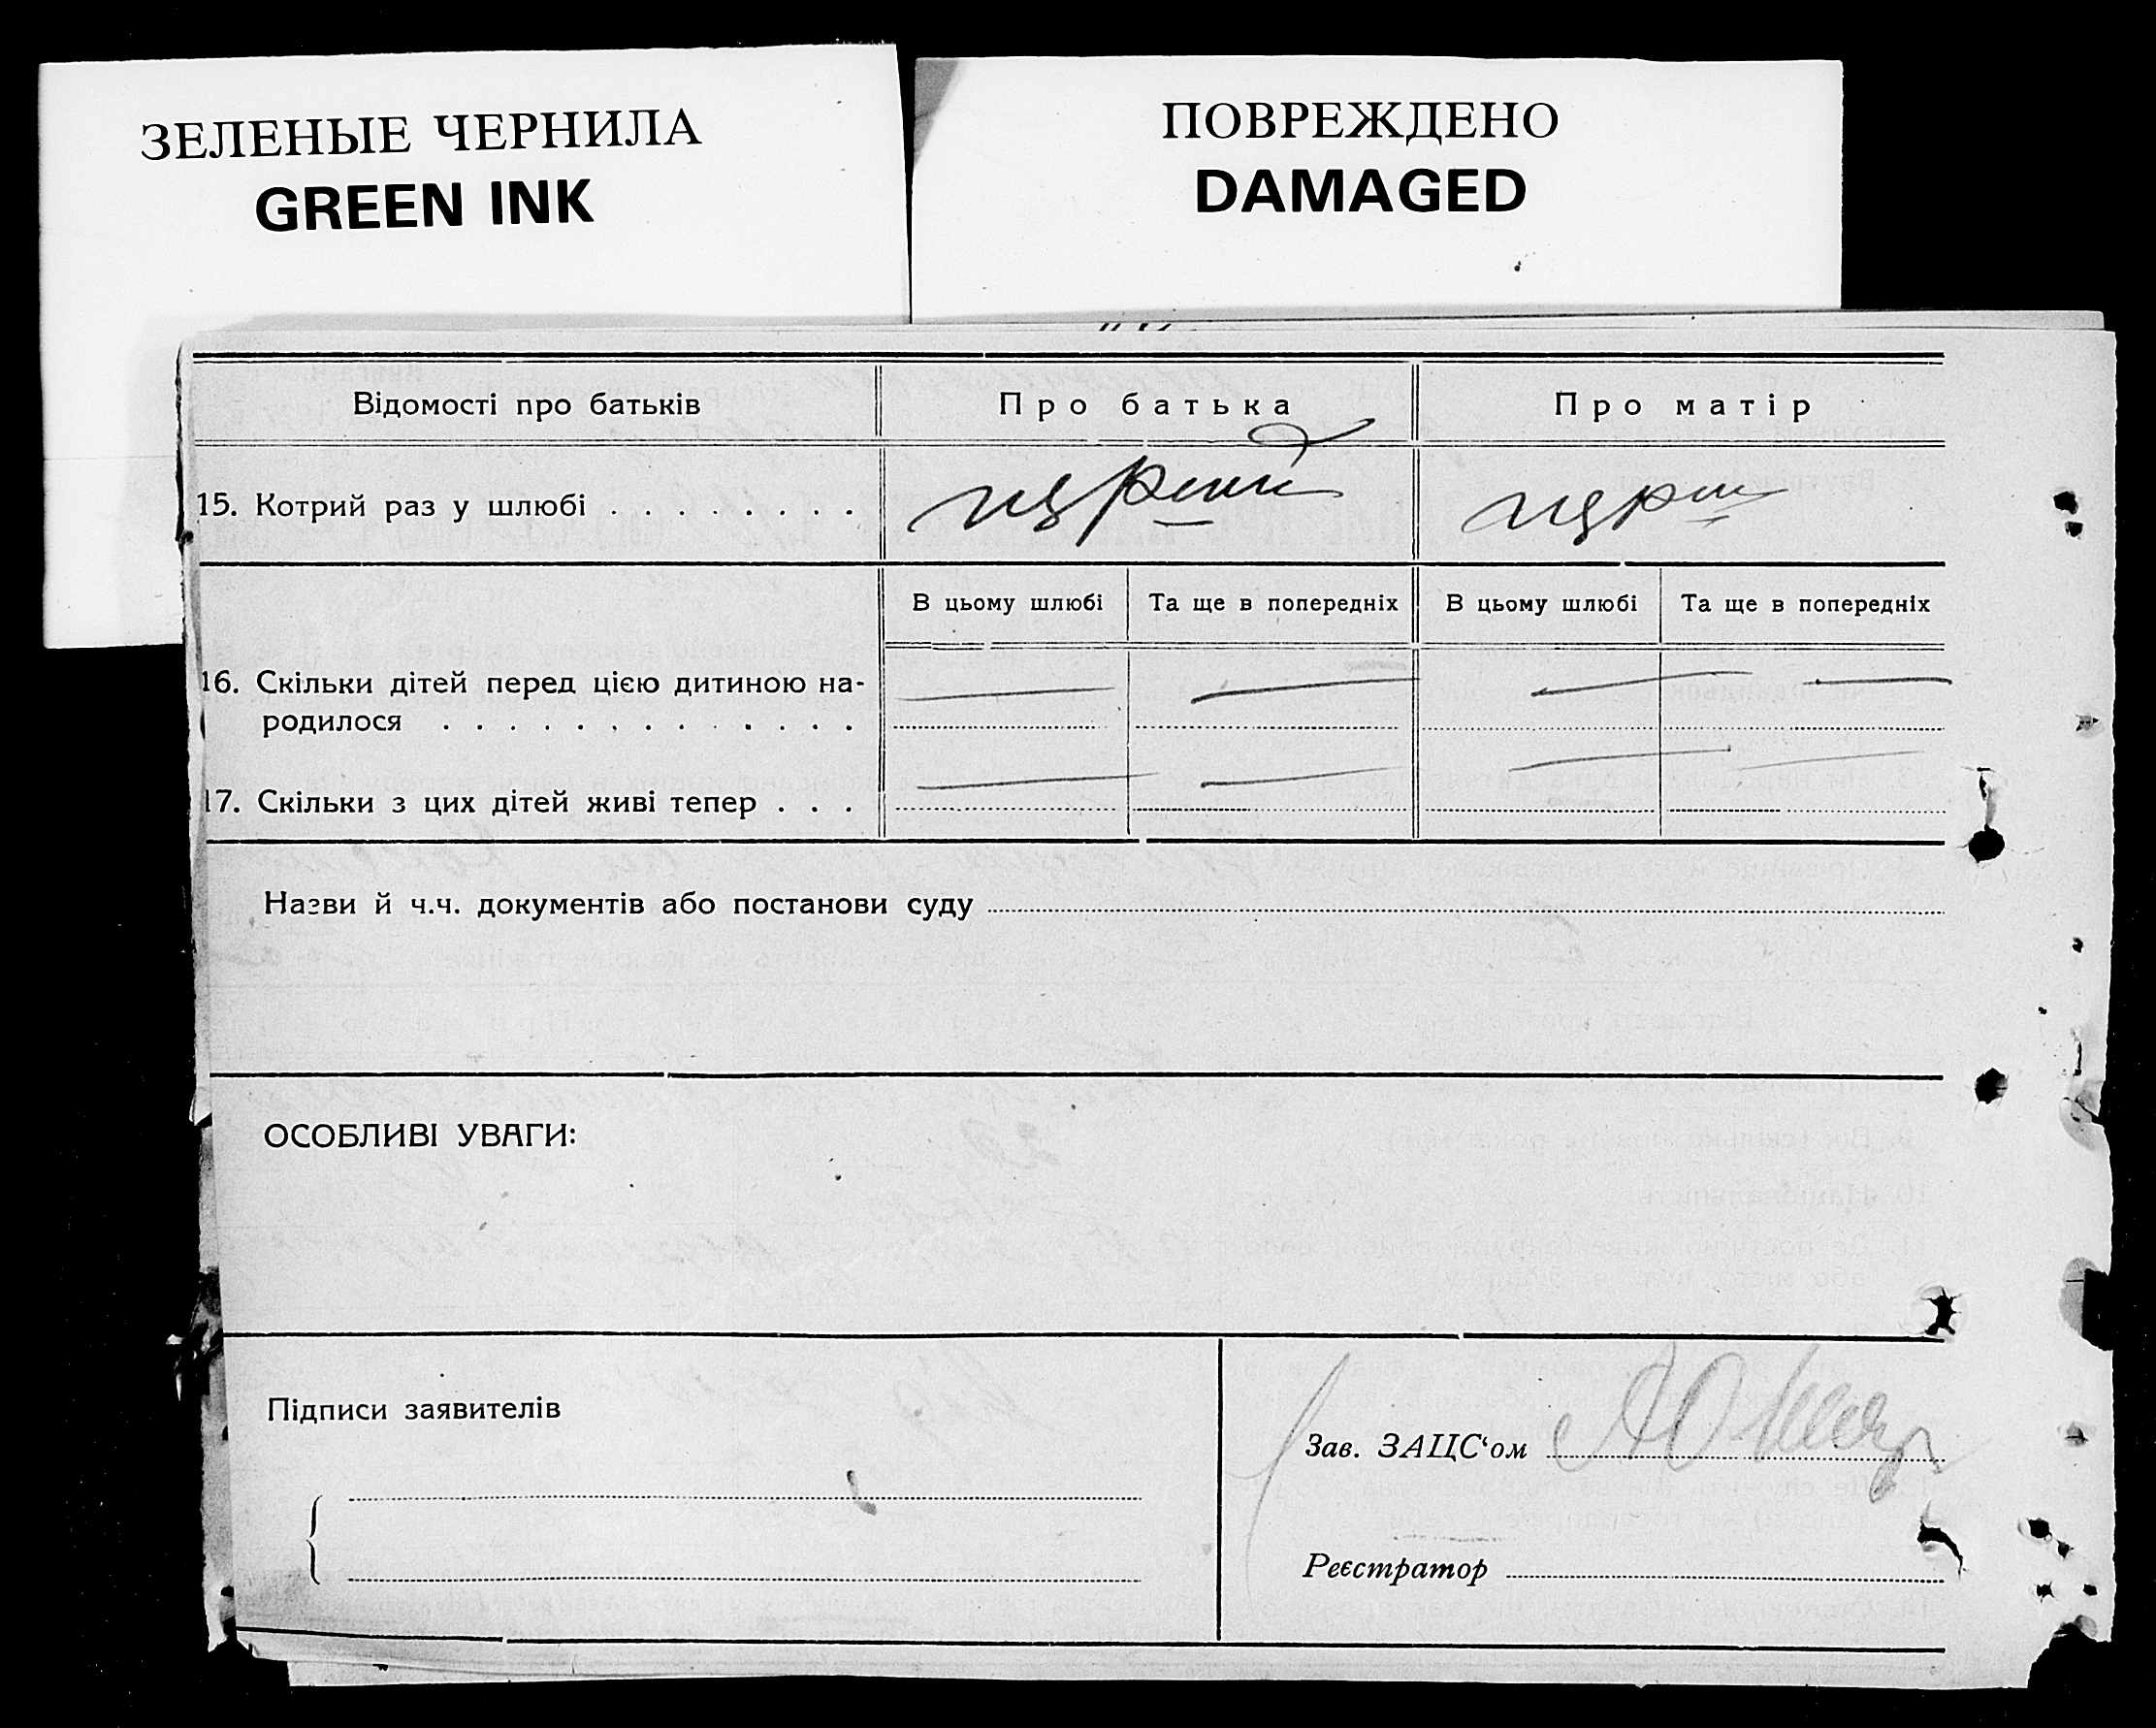 ЗЕЛЕНЫЕ ЧЕРНИЛА
GREEN INK
ПОВРЕЖДЕНО
DAMAGED
Відомості про батьків
Про батька
Про матір
15. Котрий раз у шлюбі . . . . . . . .
В цьому шлюбі
Та ще в попередніх
В цьому шлюбі
Та ще в попередніх
16. Скільки дітей перед цією дитиною на-
родилося . . . . . . . . . . . . .
17. Скільки з цих дітей живі тепер . . .
Назви й ч.ч. документів або постанови суду
ОСОБЛИВІ УВАГИ:
Підписи заявителів
Зав. ЗАЦС‘ом
Реєстратор